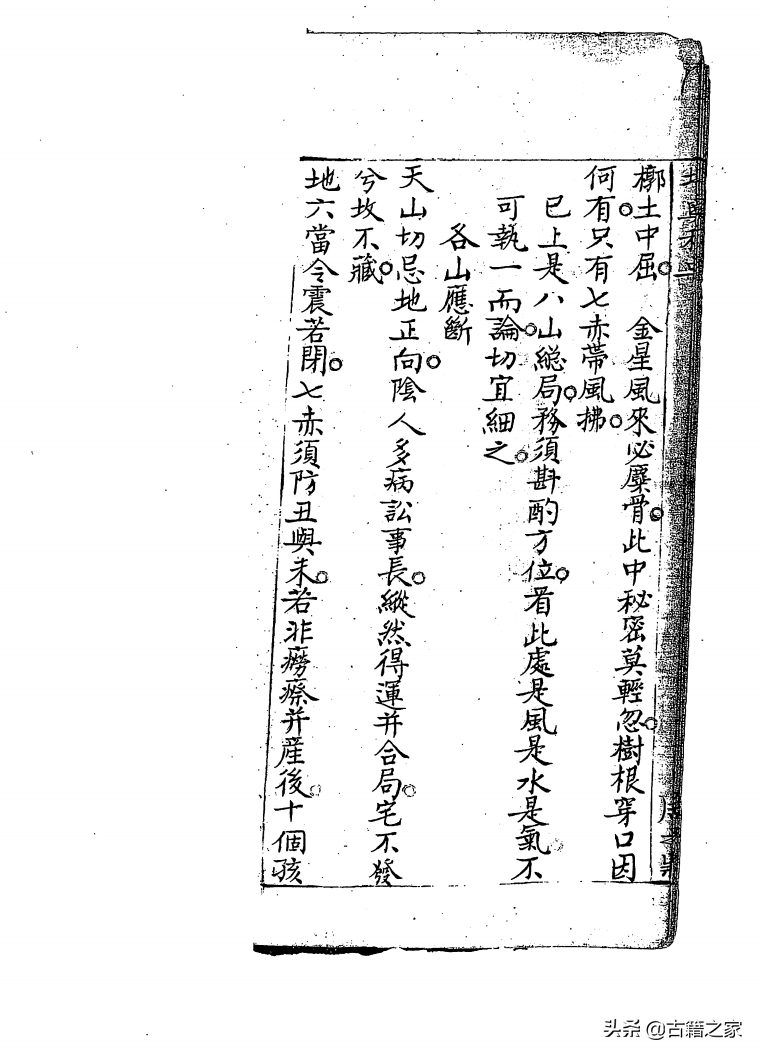 槨土中屈　金星風來必麋骨此中秘密莫輕忽樹根穿口因
何有只有七赤帶風拂
已上是八山總局務須斟酌方位看此處是風是水是氣不
可執一而論切宜細之
各山應斷
天山切忌地正向陰人多病訟事長縱然得運并合局宅不發
兮坟不藏
地六當令震若閉七赤須防丑與未若非癆瘵并產後十個孩
头条 @古籍之家